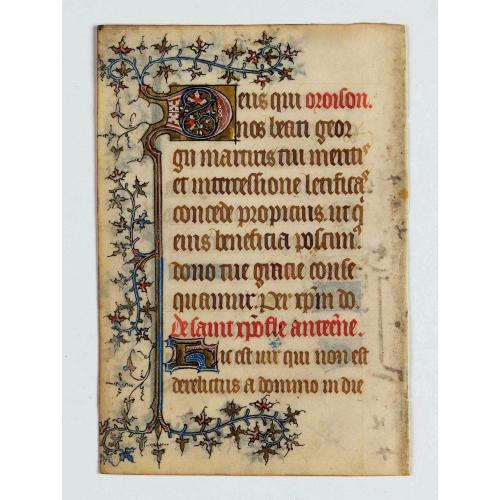 Deus qui oroison.
nos beati geor
gii martiris tui meritis
et intercessione letificas
concede propicius. ut q̄
eius beneficia poscim⁹
dono tue gracie conse-
quamur. Per xp̄m do.
de saint xp̄ofle anteine.
Hic est uir qui non est
derelictus a domino in die